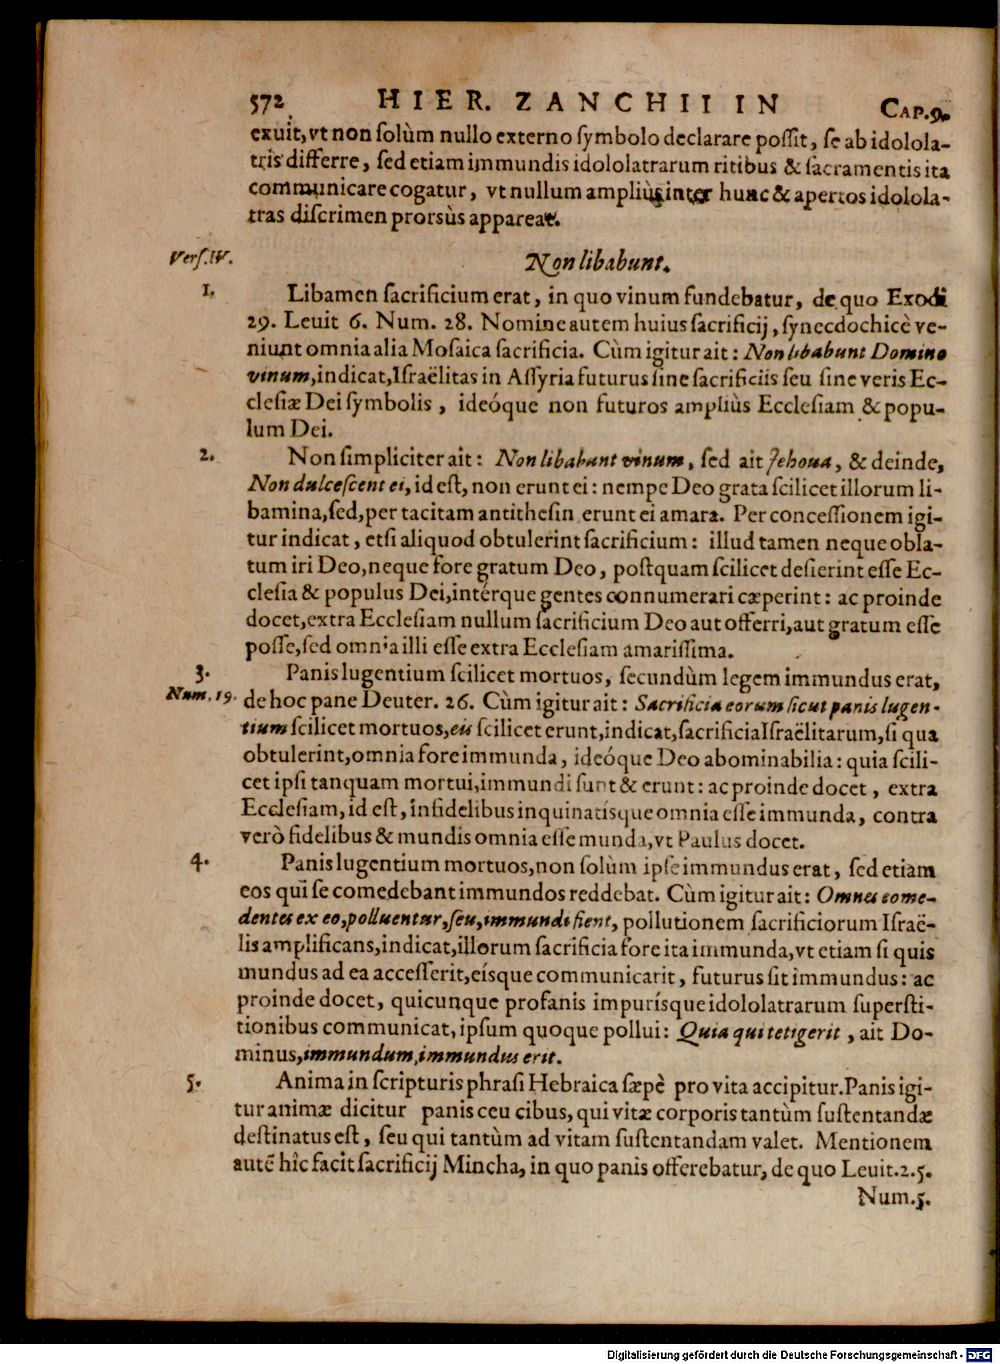 572 HIER. ZANCHII IN CAP.9.
exuit, vt non ſolùm nullo externo ſymbolo declarare poſſit, ſe ab idolola-
tris differre, ſed etiam immundis idololatrarum ritibus & ſacramentis ita
communicare cogatur, vt nullum ampliùs inter hunc & apertos idolola-
tras diſcrimen prorsùs appareat.
Verſ.IV. Non libabunt.
1. Libamen ſacrificium erat, in quo vinum fundebatur, de quo Exodi
29. Leuit 6. Num. 28. Nomine autem huius ſacrificij, ſynecdochicè ve-
niunt omnia alia Moſaica ſacrificia. Cùm igitur ait: Non libabunt Domino
vinum, indicat, Iſraëlitas in Aſſyria futurus ſine ſacrificiis ſeu ſine veris Ec-
cleſiæ Dei ſymbolis, ideóque non futuros ampliùs Eccleſiam & popu-
lum Dei.
2. Non ſimpliciter ait: Non libabunt vinum, ſed ait Jehoua, & deinde,
Non dulceſcent ei, id eſt, non erunt ei: nempe Deo grata ſcilicet illorum li-
bamina, ſed, per tacitam antitheſin erunt ei amara. Per conceſſionem igi-
tur indicat, etſi aliquod obtulerint ſacrificium: illud tamen neque obla-
tum iri Deo, neque fore gratum Deo, poſtquam ſcilicet deſierint eſſe Ec-
cleſia & populus Dei, intérque gentes connumerari cæperint: ac proinde
docet, extra Eccleſiam nullum ſacrificium Deo aut offerri, aut gratum eſſe
poſſe, ſed omnia illi eſſe extra Eccleſiam amariſſima.
3. Panis lugentium ſcilicet mortuos, ſecundùm legem immundus erat,
Num. 19. de hoc pane Deuter. 26. Cùm igitur ait: Sacrificia eorum ſicut panis lugen-
tium ſcilicet mortuos, eis ſcilicet erunt, indicat, ſacrificia Iſraëlitarum, ſi qua
obtulerint, omnia fore immunda, ideóque Deo abominabilia: quia ſcili-
cet ipſi tanquam mortui, immundi ſunt & erunt: ac proinde docet, extra
Eccleſiam, id eſt, infidelibus inquinatísque omnia eſſe immunda, contra
verò fidelibus & mundis omnia eſſe munda, vt Paulus docet.
4. Panis lugentium mortuos, non ſolùm ipſe immundus erat, ſed etiam
eos qui ſe comedebant immundos reddebat. Cùm igitur ait: Omnes come-
dentes ex eo, polluentur, ſeu, immundi fient, pollutionem ſacrificiorum Iſraë-
lis amplificans, indicat, illorum ſacrificia fore ita immunda, vt etiam ſi quis
mundus ad ea acceſſerit, eísque communicarit, futurus ſit immundus: ac
proinde docet, quicunque profanis impurísque idololatrarum ſuperſti-
tionibus communicat, ipſum quoque pollui: Quia qui tetigerit, ait Do-
minus, immundum, immundus erit.
5. Anima in ſcripturis phraſi Hebraica ſæpè pro vita accipitur. Panis igi-
tur animæ dicitur panis ceu cibus, qui vitæ corporis tantùm ſuſtentandæ
deſtinatus eſt, ſeu qui tantùm ad vitam ſuſtentandam valet. Mentionem
autẽ hîc facit ſacrificij Mincha, in quo panis offerebatur, de quo Leuit.2.5.
Num.5.
Digitalisierung gefördert durch die Deutsche Forschungsgemeinschaft - DFG